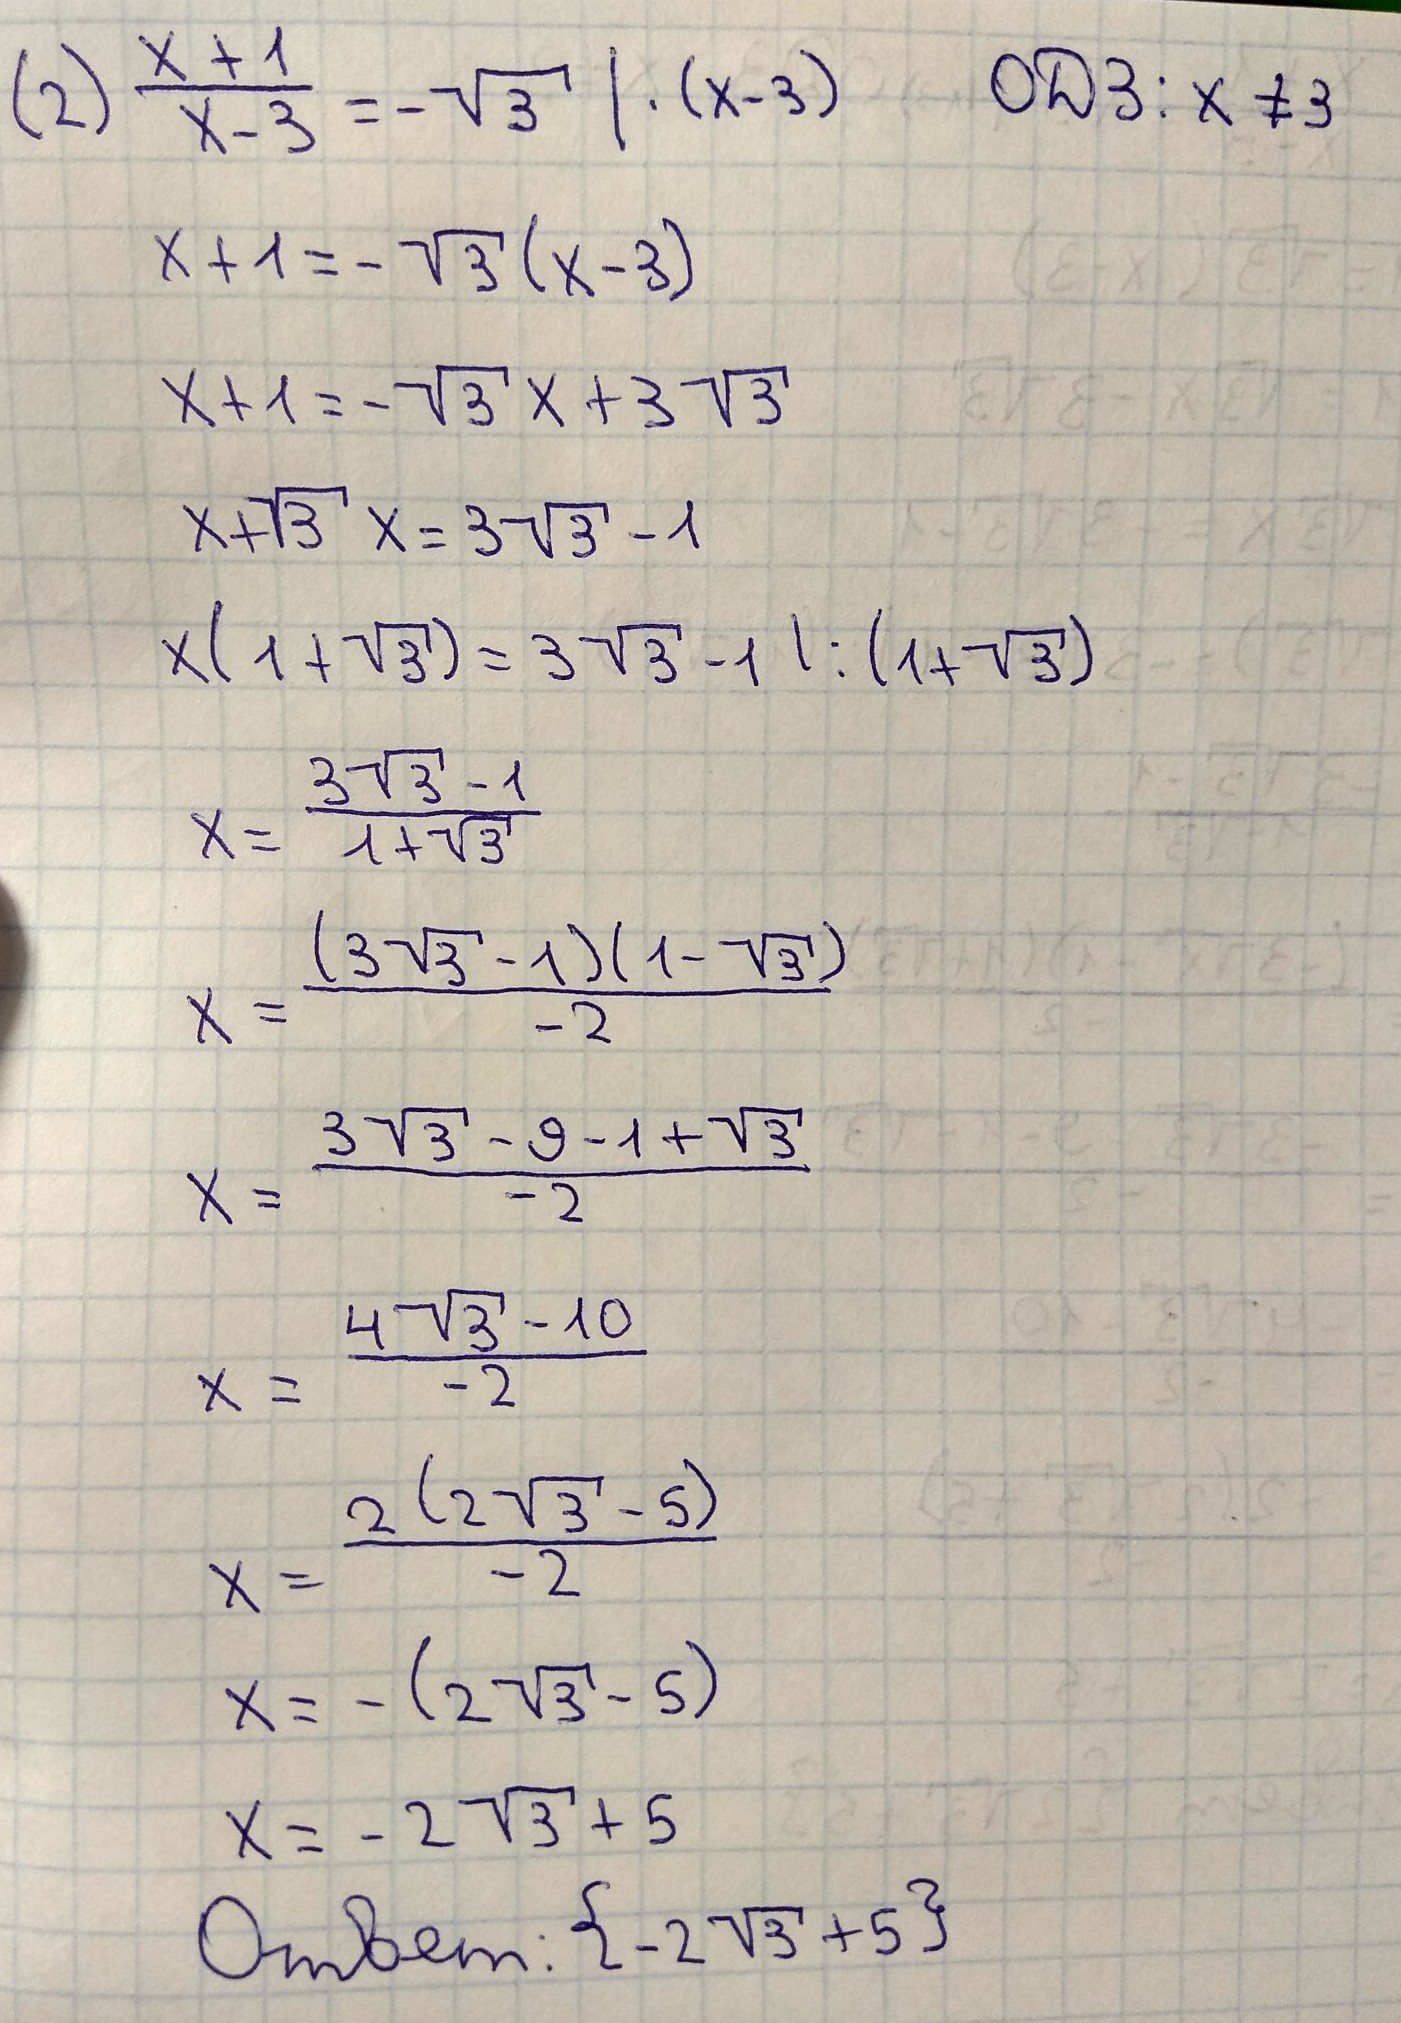 (2) \frac{x+1}{x-3} = -\sqrt{3} | \cdot (x-3) ОДЗ: x ≠ 3
x+1 = -\sqrt{3}(x-3)
x+1 = -\sqrt{3}x+3\sqrt{3}
x+\sqrt{3}x = 3\sqrt{3}-1
x(1+\sqrt{3}) = 3\sqrt{3}-1 | : (1+\sqrt{3})
x = \frac{3\sqrt{3}-1}{1+\sqrt{3}}
x = \frac{(3\sqrt{3}-1)(1-\sqrt{3})}{-2}
x = \frac{3\sqrt{3}-9-1+\sqrt{3}}{-2}
x = \frac{4\sqrt{3}-10}{-2}
x = \frac{2(2\sqrt{3}-5)}{-2}
x = -(2\sqrt{3}-5)
x = -2\sqrt{3}+5
Ответ: {-2\sqrt{3}+5}